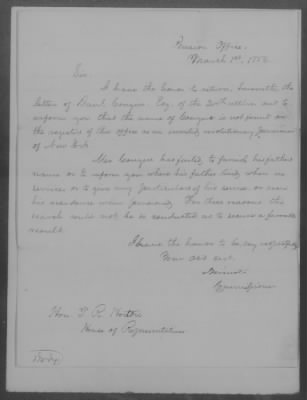 Pension Office,
March 1st, 185
Sir,
I have the honor to return, herewith the
letter of Daniel Conger, Esq. of the 20th ultimo and to
inform you that the name of Conger is not found on
the registers of this office as an invalid revolutionary pensioner
of New York.
Mr. Conger has failed to furnish his father's
name or to inform you where his father lived, when in
service or to give any particulars of his service or even
his residence when pensioned. For these reasons the
search could not be so conducted as to secure a favorable
result.
I have the honor to be, very respectfully
Your obt. servt.
Commissioner
Hon.
House of Representatives